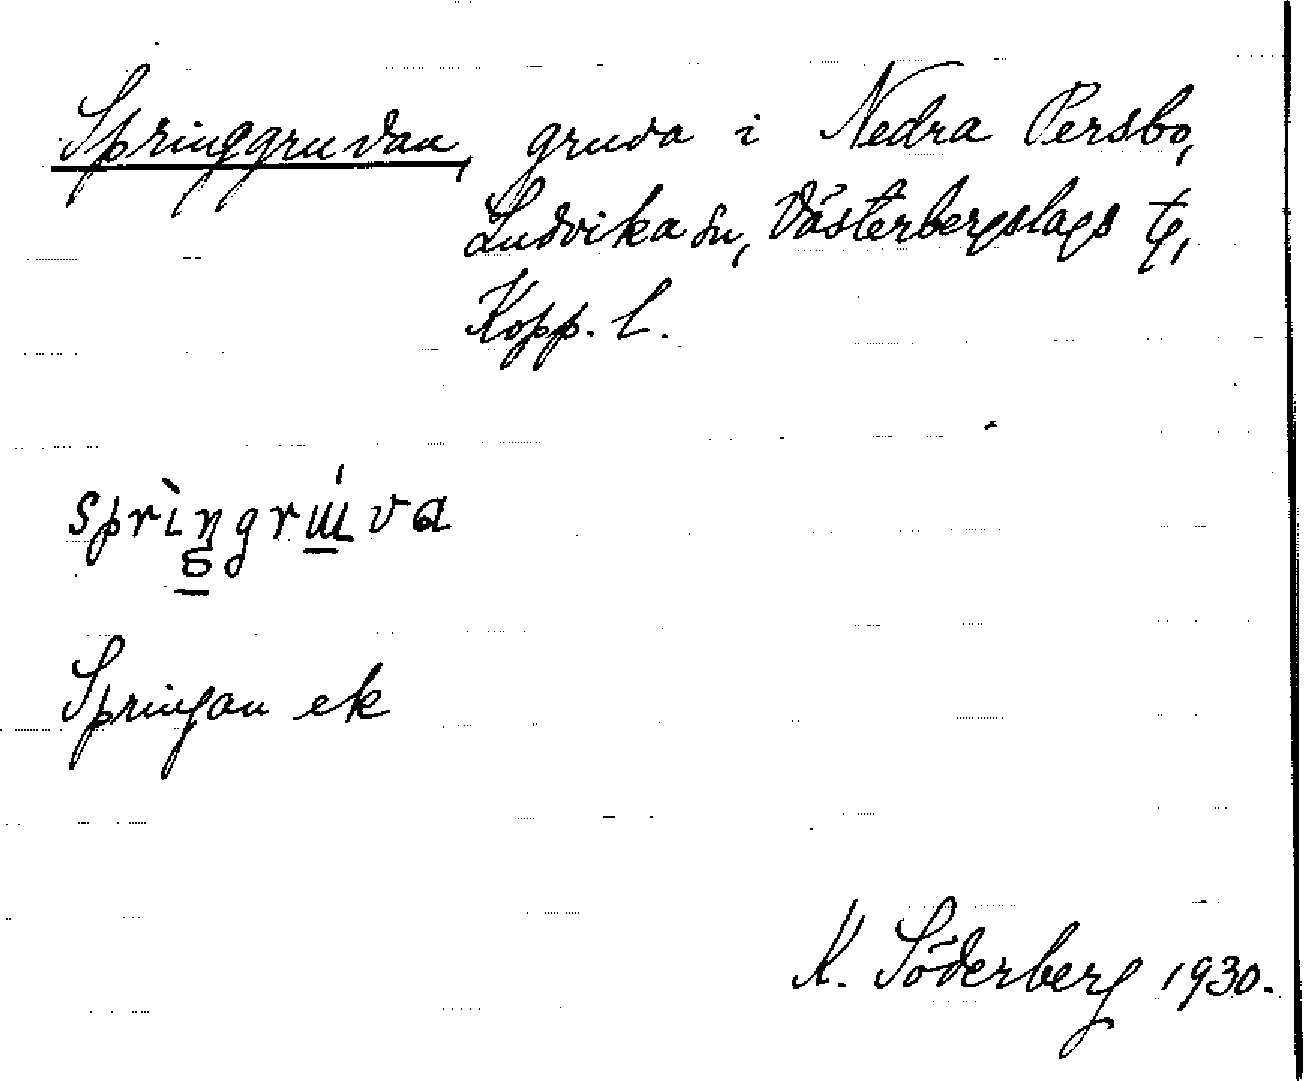 Springgruvan, gruva i Nedra Persbo,
Ludvika sn, Västerbergslags tg,
Kopp. l.
Springan ek
K. Söderberg 1930.